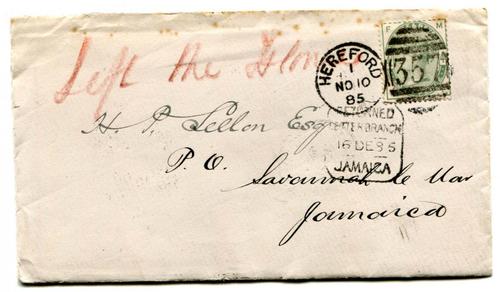 Left the Island
HEREFORD
1
NO 10
85
F M
357
H. P. Sellon Esq
RETURNED
LETTER BRANCH
16 DE 85
JAMAICA
P. O.
Savannah le Mar
Jamaica